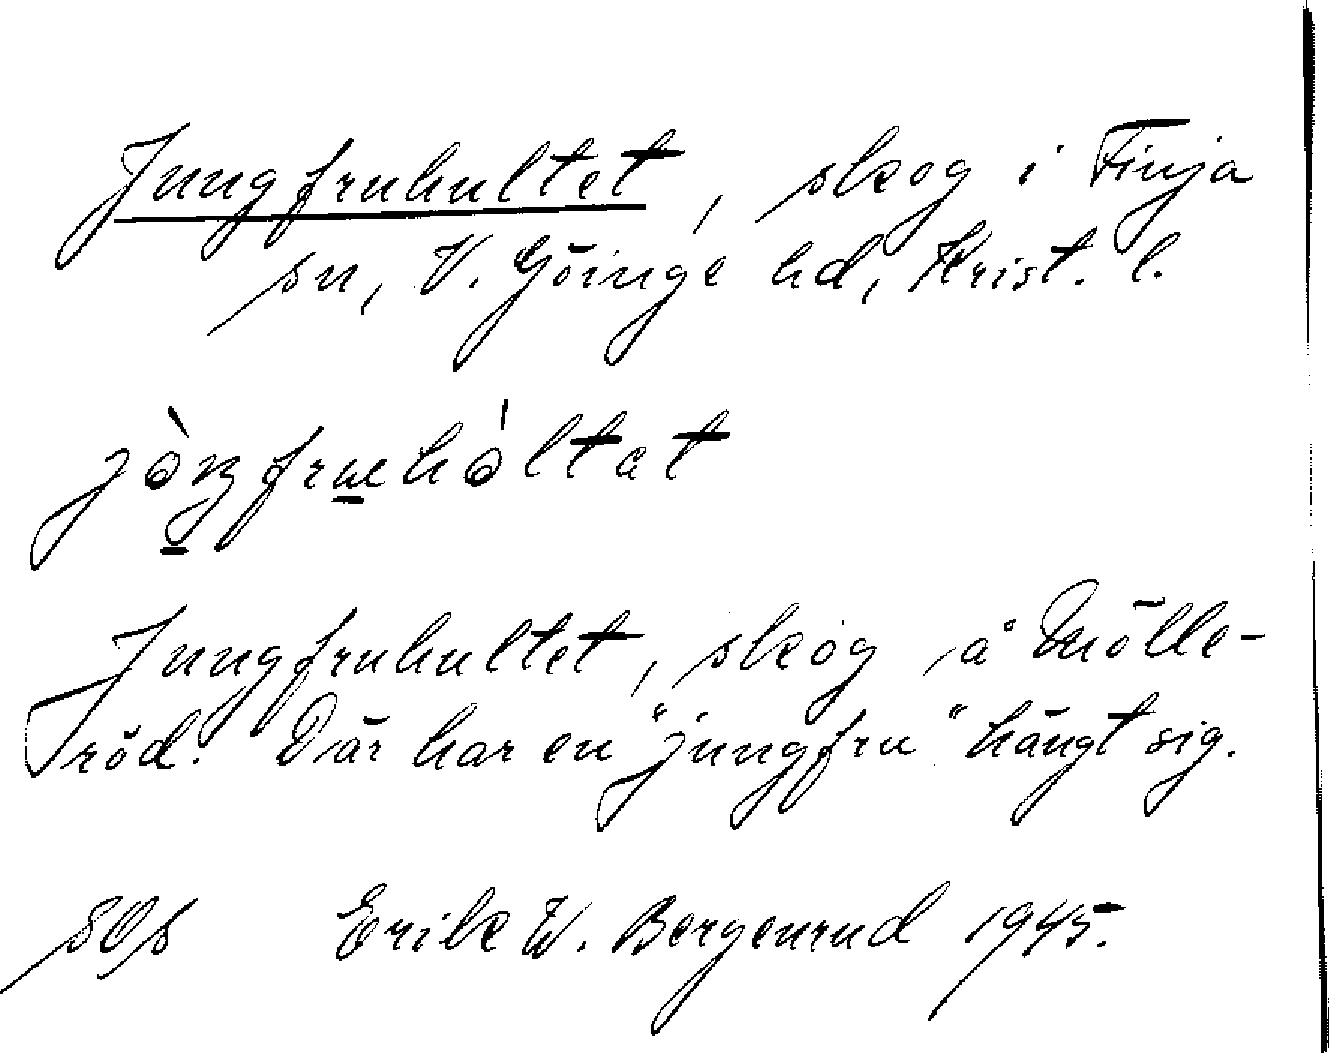 Jungfruhultet, skog i Finja
sn, V. Göinge hd, Krist. l.
Jungfruhultet, skog å Mölle-
röd. Där har en "jungfru" hängt sig.
Erik W. Bergenrud 1945.